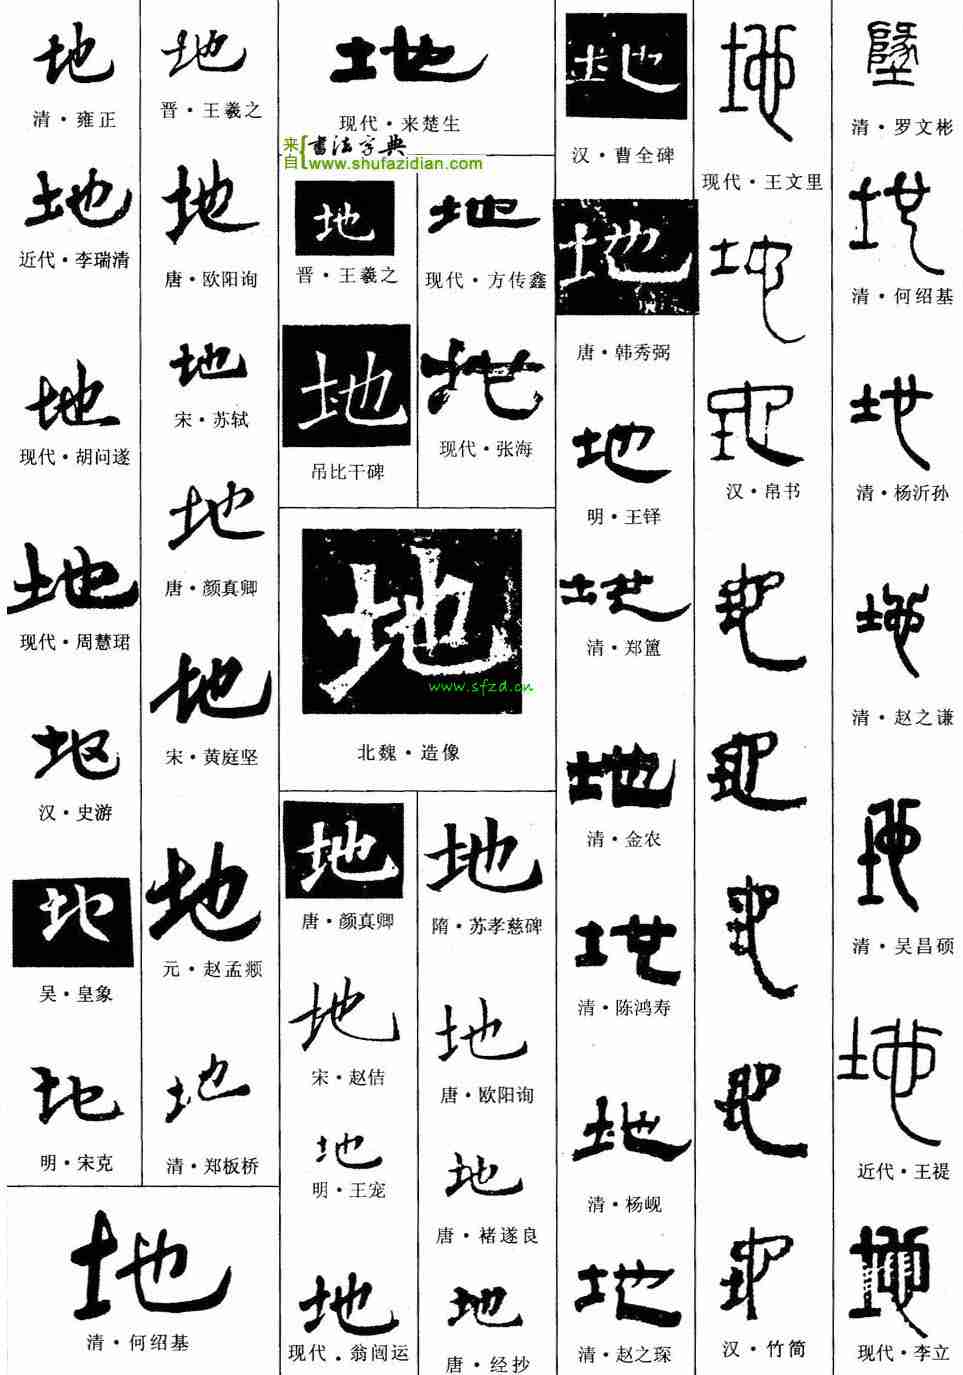 地
清·雍正
地
近代·李瑞清
地
现代·胡问遂
地
现代·周慧珺
地
汉·史游
地
吴·皇象
地
明·宋克
地
清·何绍基
地
晋·王羲之
地
唐·欧阳询
地
宋·苏轼
地
唐·颜真卿
地
宋·黄庭坚
地
元·赵孟頫
地
清·郑板桥
地
现代·来楚生
来自{书法字典
www.shufazidian.com
地
晋·王羲之
地
吊比干碑
地
现代·方传鑫
地
现代·张海
地
www.sfzd.cn
北魏·造像
地
唐·颜真卿
地
宋·赵佶
地
明·王宠
地
现代·翁闿运
地
隋·苏孝慈碑
地
唐·欧阳询
地
唐·褚遂良
地
唐·经抄
地
汉·曹全碑
地
唐·韩秀弼
地
明·王铎
地
清·郑簠
地
清·金农
地
清·陈鸿寿
地
清·杨岘
地
清·赵之琛
地
现代·王文里
地
地
汉·帛书
地
地
地
地
地
汉·竹简
墬
清·罗文彬
地
清·何绍基
地
清·杨沂孙
地
清·赵之谦
地
清·吴昌硕
地
近代·王禔
地
现代·李立